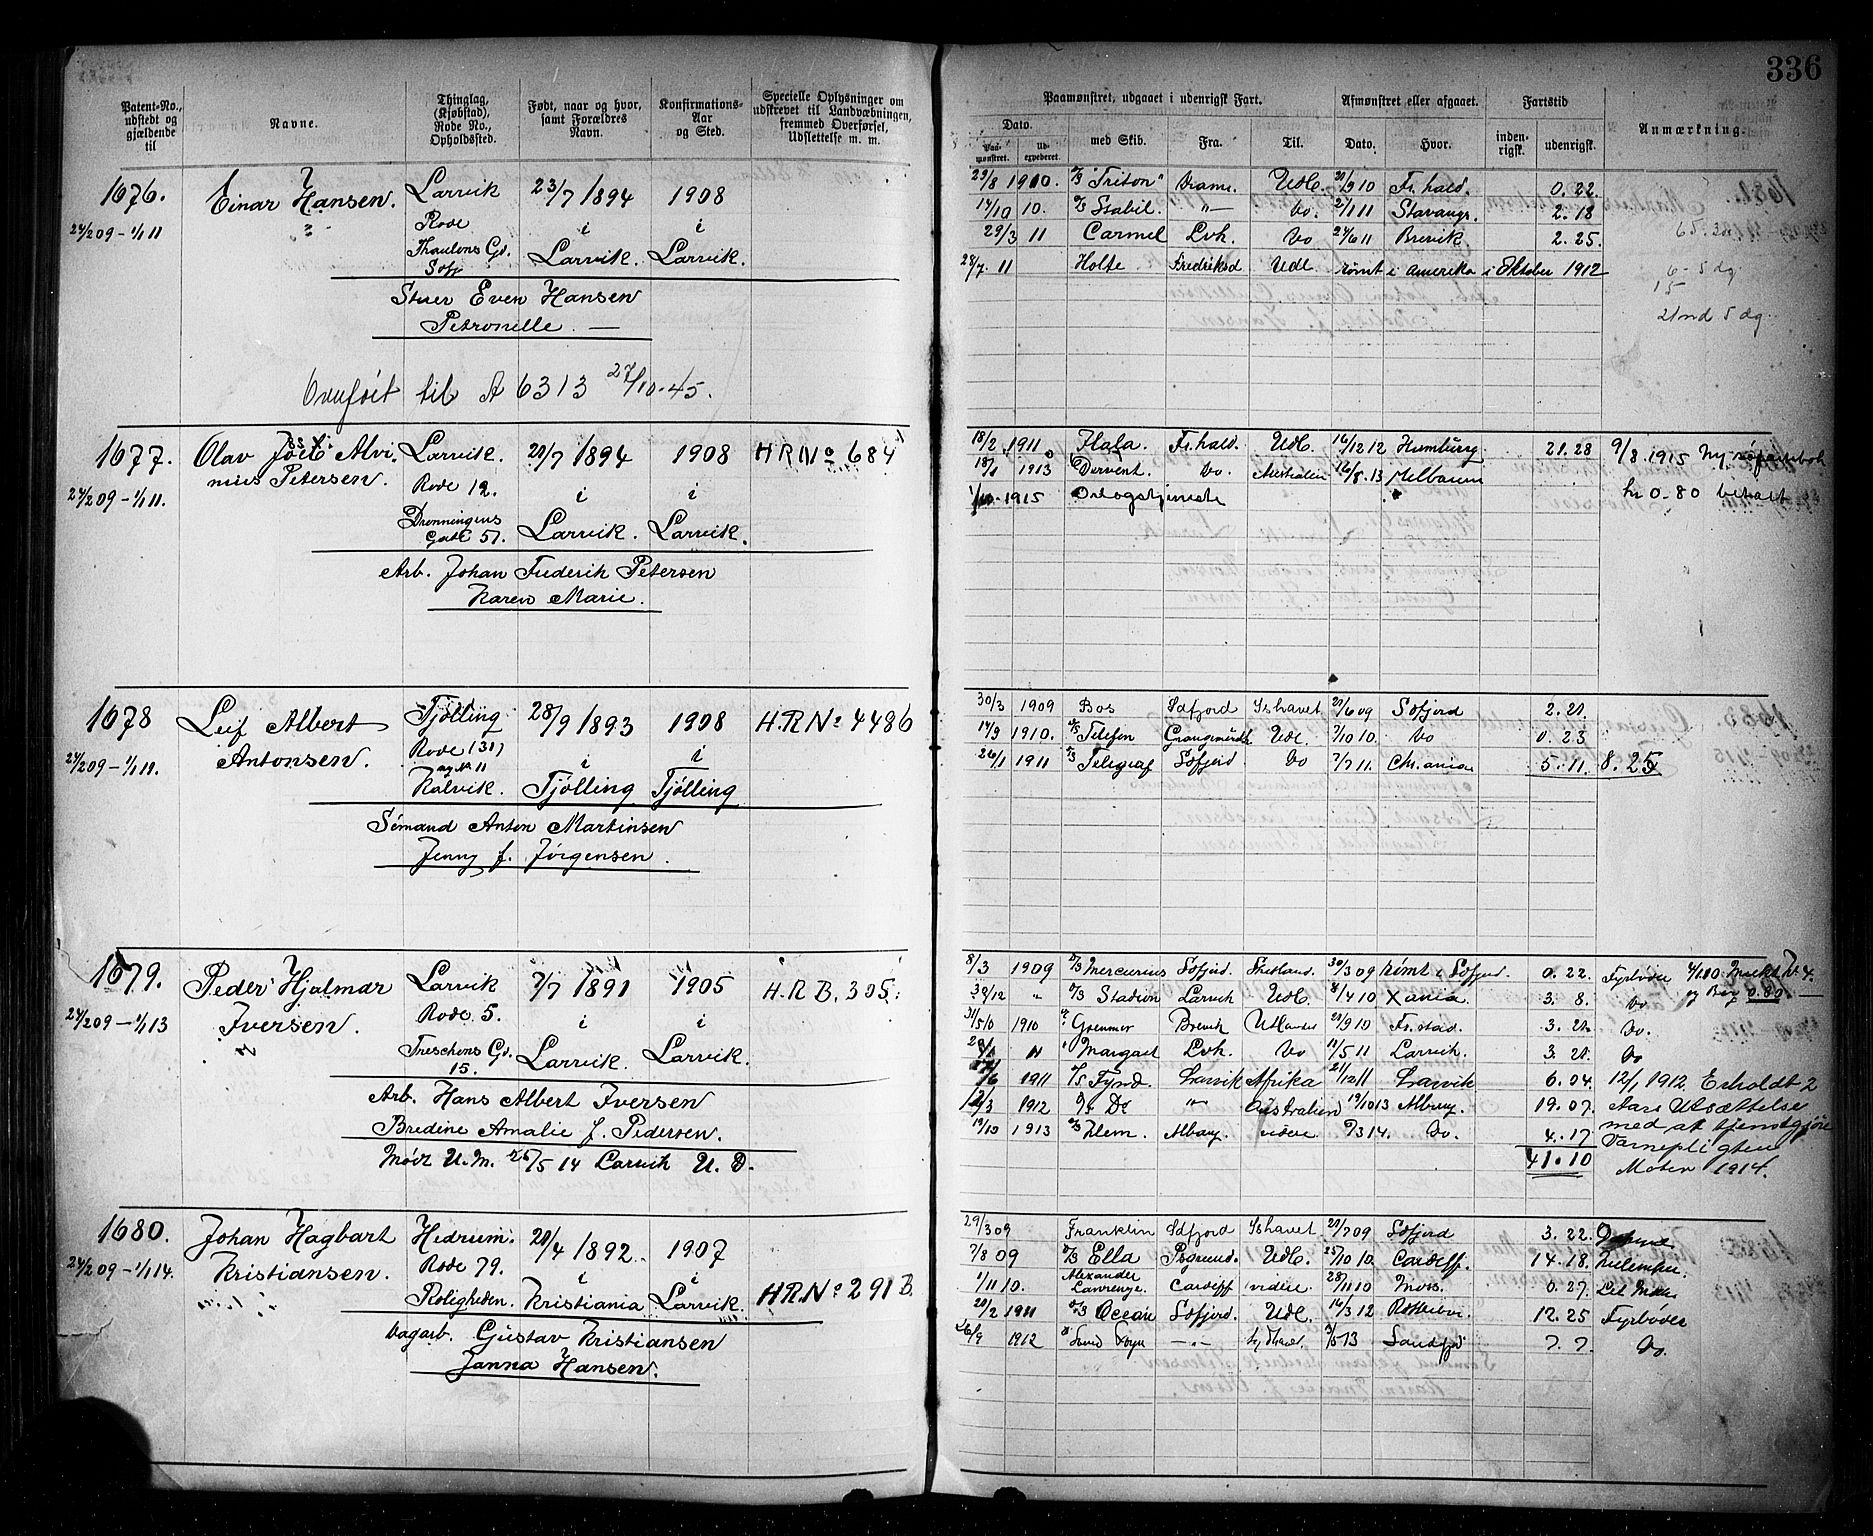 336
Patent-No., udstedt og gjældende til
Navne.
Thinglag, (Kjøbstad), Rode No., Opholdssted.
Født, naar og hvor, samt Forældres Navn.
Konfirmations-Aar og Sted.
Specielle Oplysninger om udskrevet til Landværbningen, fremmed Overførsel, Udslettelse m. m.
Paamønstret, udgaaet i udenrigsk Fart.
Afmønstret eller afgaaet.
Fartstid
Anmærkning.
Dato.
Paa-mønstret.
Ud-expederet.
med Skib.
Fra.
Til.
Dato.
Hvor.
inden-rigsk.
udenrigsk.
1676. Einar Hansen. Larvik 23/7 1894 1908
24/209 - 1/1 11 Rode i i
Thaulons Gd. Larvik. Larvik.
Stuer Even Hansen
Petronelle. —
Overført til A 6313 27/10-45.
29/8 1910. "Triton" Dram. Udl. 21/9 10 Fr.hald. 0. 22.
14/10 10. Stabil. -"- Do. 2/1 11 Stavangr. 2. 18
29/3 11 Carmel Lvk. Do 24/6 11 Brevik 2. 25.
28/7. 11 Holte Fredriksd Udl rømt i Amerika i Oktober 1912
6 - 5 dg.
15
21 nd 5 dg.
1677. Olav Alvi- Larvik. 21/7 1894 1908 H.R.No 684
nius Petersen. Rode 12. i i
24/209 - 1/1 11.
Dronningens Gate 57. Larvik. Larvik.
Arb. Johan Frederik Petersen
Karen Marie.
18/2 1911. Hafa. Fr.hald. Udl. 16/12 12 Hamburg 21. 28 9/8 1915 Ny
18/1 1913 Dervent. Do. Australien 16/8. 13 Melbourn kr 0-80 betalt
1/10-1915 Orlogstjeneste
1678 Leif Albert Tjølling 28/9 1893 1908 H.R.No 4486
Antonsen. Rode (31)
24/209 - 1/1 11. ny No 11 i i
Kalvik. Tjølling Tjølling
Sømand Anton Martinsen
Jenny f. Jørgensen.
30/3 1909 Bos Sdfjord Ishavet 21/6 09 Sdfjord 2. 21.
14/9 1910. Telefon Grangemouth Udl. 7/10 10. Do 0. 23
26/1 1911 Telegraf Sdfjord Do 7/7 11. Chr.ania 5. 11. 8. 25
1679. Peder Hjalmar Larvik 7/7 1891 1905 H.R.B. 305.
Iversen. Rode 5. i i
24/209 - 1/1 13
Treschows Gd. 15. Larvik. Larvik.
Arb. Hans Albert Iversen
Bredine Amalie f. Pedersen.
Mødt U.M. 26/5 14 Larvik U. D.
8/3 1909 Mercurius Sdfjord. Shetland. 30/3 09 rømt i Sdfjord. 0. 22. Fyrbøder
30/12 " Stadion Larvik Udl. 8/4 10 Xania. 3. 8. Do
31/5 10 1910 Grenmar Brevik Udlandet 21/9 10 Fr.stad. 3. 21. Do.
" Margaet Lvk. Do 11/5 11 Larvik. 3. 21. Do
1/6 1911 Fynd. Larvik Afrika 21/12 11 Larvik 6. 04. 12/1 1912 Erholdt 2
2/3 1912 Do " Australien 19/10 13 Albany. 19. 07. Aars Utsættelse
19/10 1913 Klem. Albany. videre 9/3 14. Do. 4. 17 med at tjenstgjøre
41. 10 Værnepligten
Møter 1914.
1680. Johan Hagbart Hedrum. 21/4 1892. 1907
Kristiansen. Rode 79. i i
24/209 - 1/1 14.
Roligheden. Kristiania Larvik. H.R.No 291 B.
Dagarb. Gustav Kristiansen
Janna Hansen.
29/3 09 Franklin Sdfjord Ishavet 21/7 09 Sdfjord 3. 22.
7/8 09 Ella Porsgrund. Udl. 25/10 10. Cardiff. 14. 18. Kulemper.
1/11 10. Alexander Lawrenge Cardiff videre 28/11 10 Moss. 0. 27. Let Mat.
21/2 1911 Ocean Sdfjord. Udl. 14/3 12 12. 25 Fyrbøder
26/9 1912 Svend Foyn -"- Sydhavet. 7/5 13 Sandfjd 7. 7. Do.